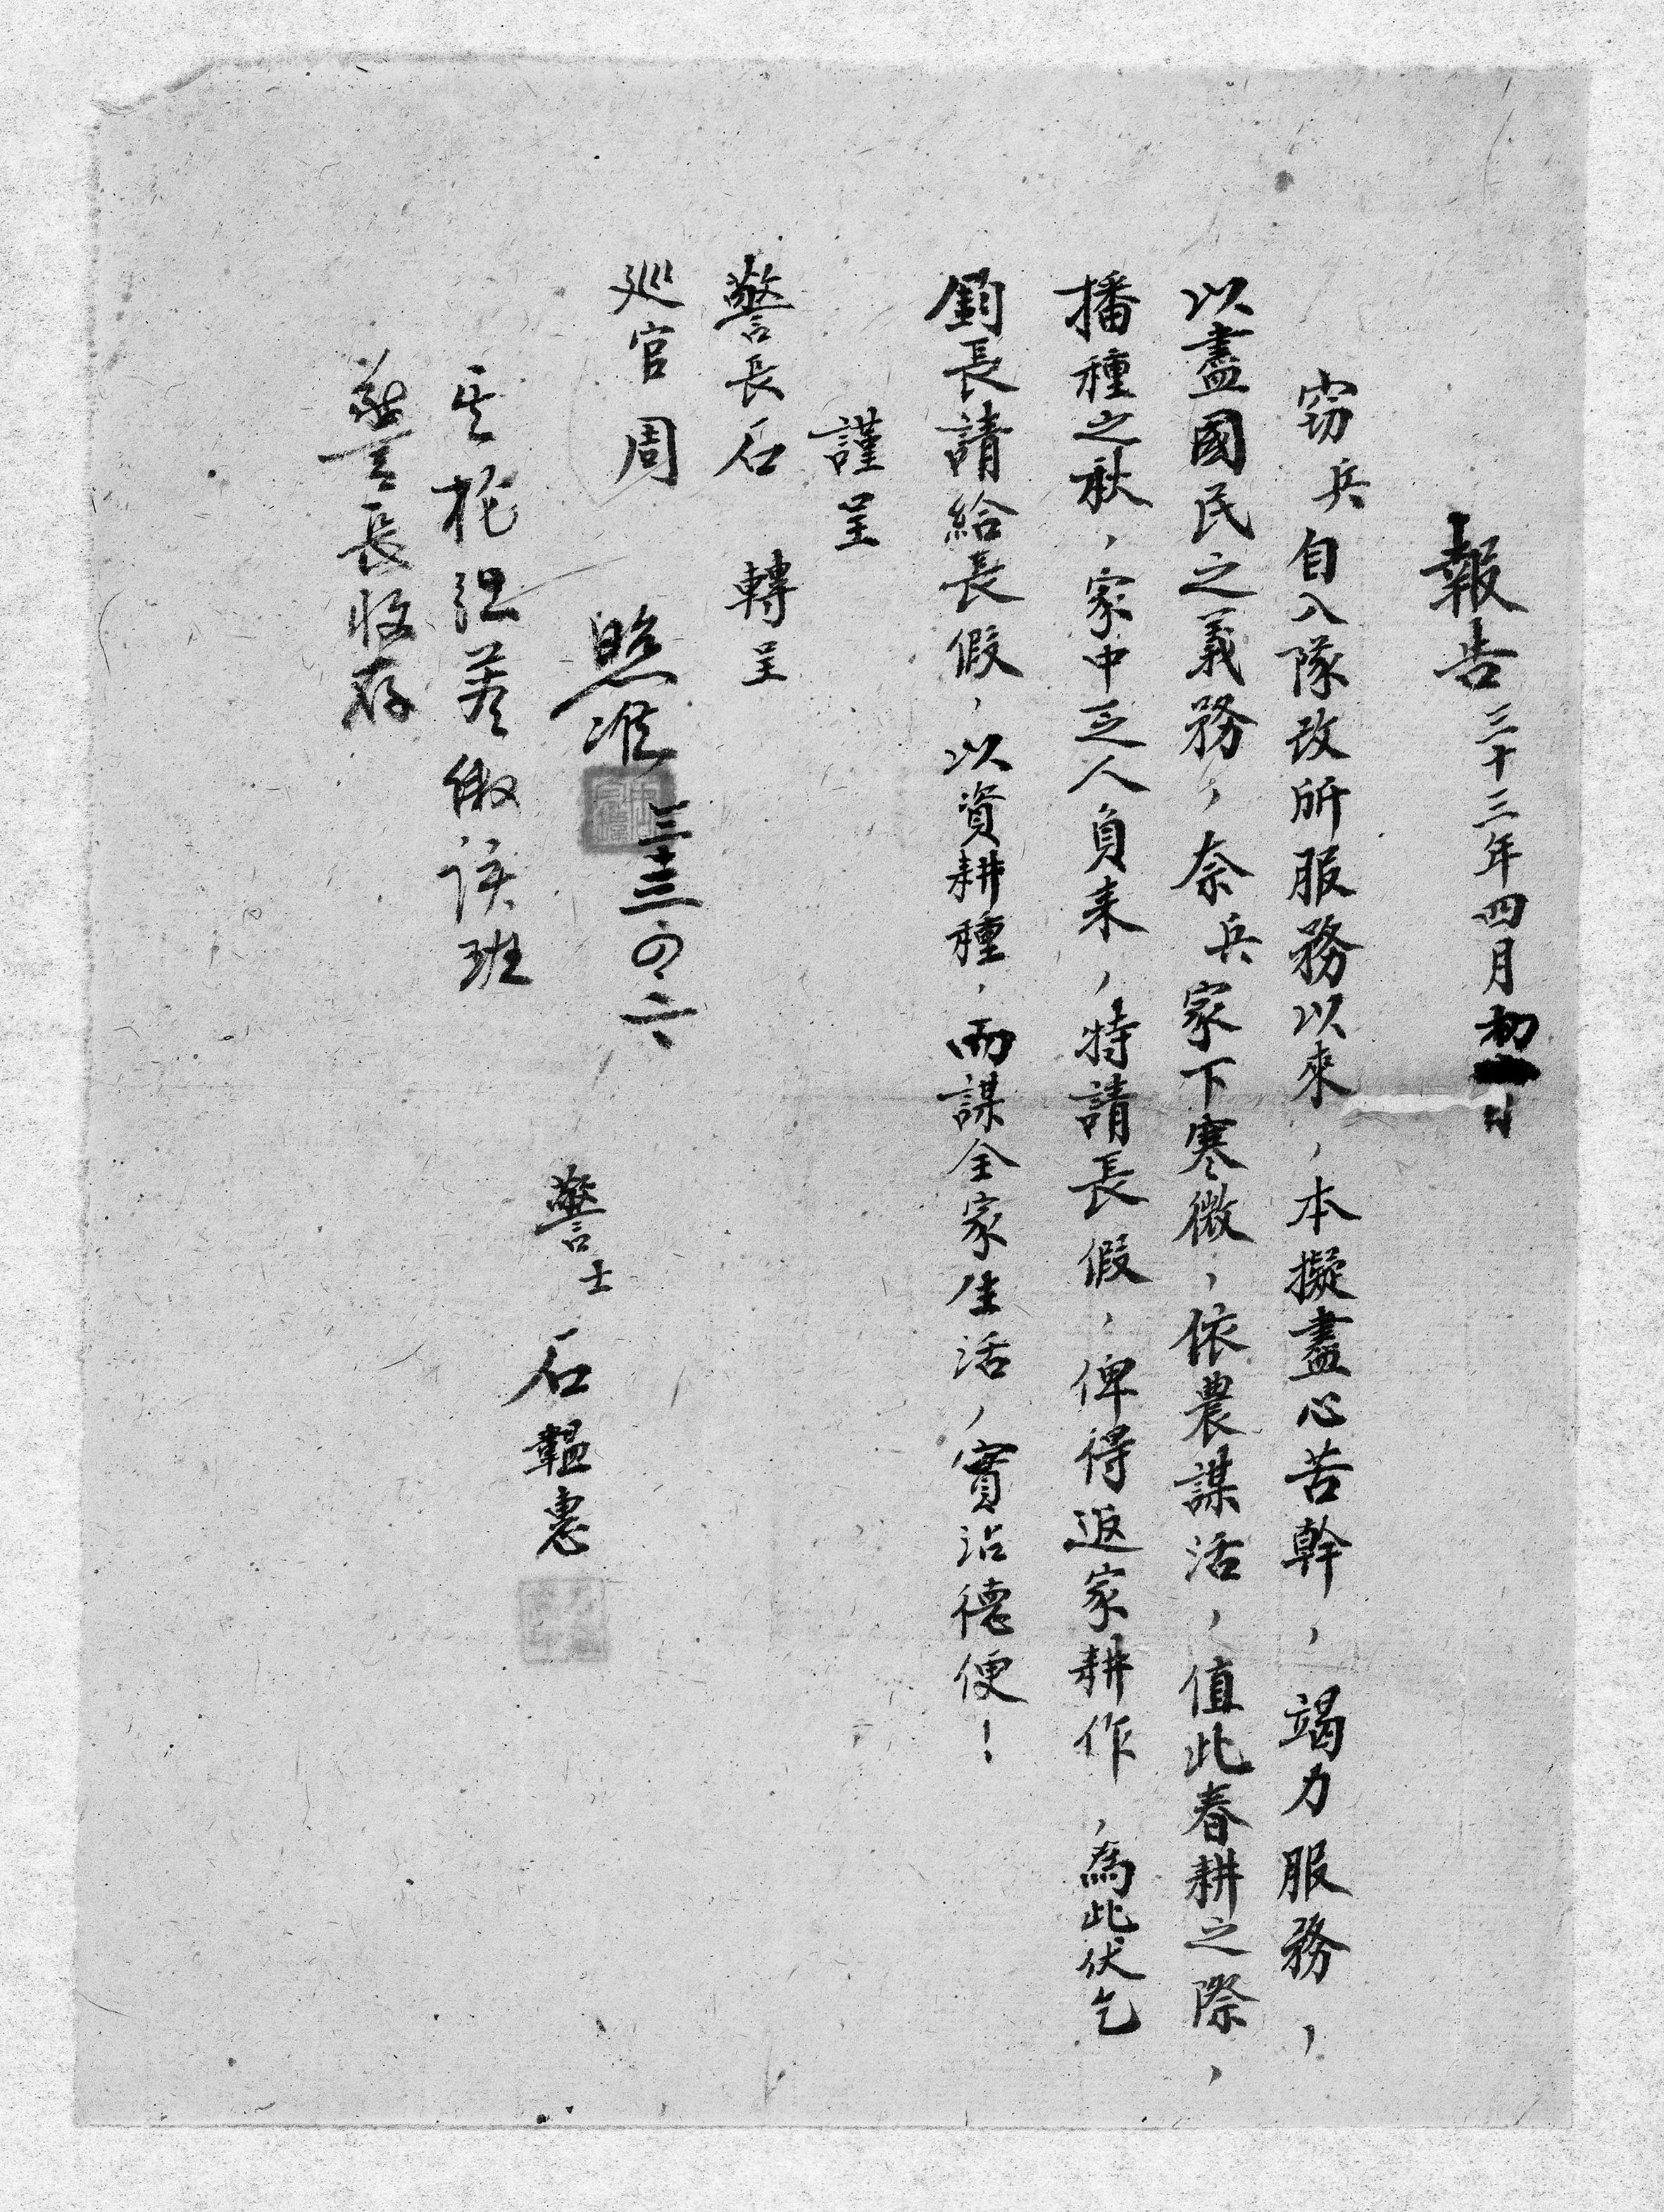 報告 三十三年四月初一日
窃兵自入隊改所服務以來，本擬盡心苦幹，竭力服務，
以盡國民之義務，奈兵家下寒微，依農謀活，值此春耕之際，
播種之秋，家中乏人負耒，特請長假，俾得返家耕作，為此伏乞
鈞長請給長假，以資耕種，而謀全家生活，實沾德便！
謹呈
警長石 轉呈
巡官周
照准 三十三 四 六
警士 石韞惠
其槍彈并繳該班
警長收存